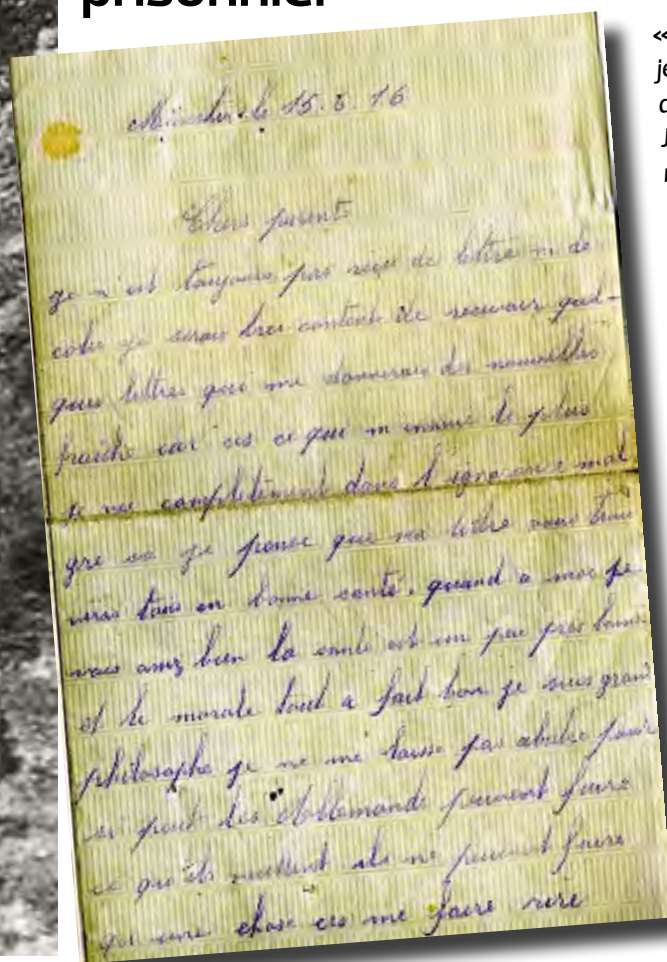 prisonnier
«
je
Münster le 15. 5. 16
Chers parents
je n'est toujours pas reçu de lettre ni de
colis je serais tres content de recevoir quel-
ques lettres qui me donnerais des nouvelles
fraiche car ces ce que m'ennuie le plus
je vie completement dans l'ignorance mal
gre sa je pense que ma lettre vous trou
veras tous en bonne santé, quand a moi je
vais assez bien la santé est un peu pres bonne
et le morale tout a fait bon je suis grand
philosophe je ne me laisse pas abattre pour
si peut les Allemands peuvent faire
ce qu'ils veullent ils ne peuvent faire
qu'une chose ces me faire rire